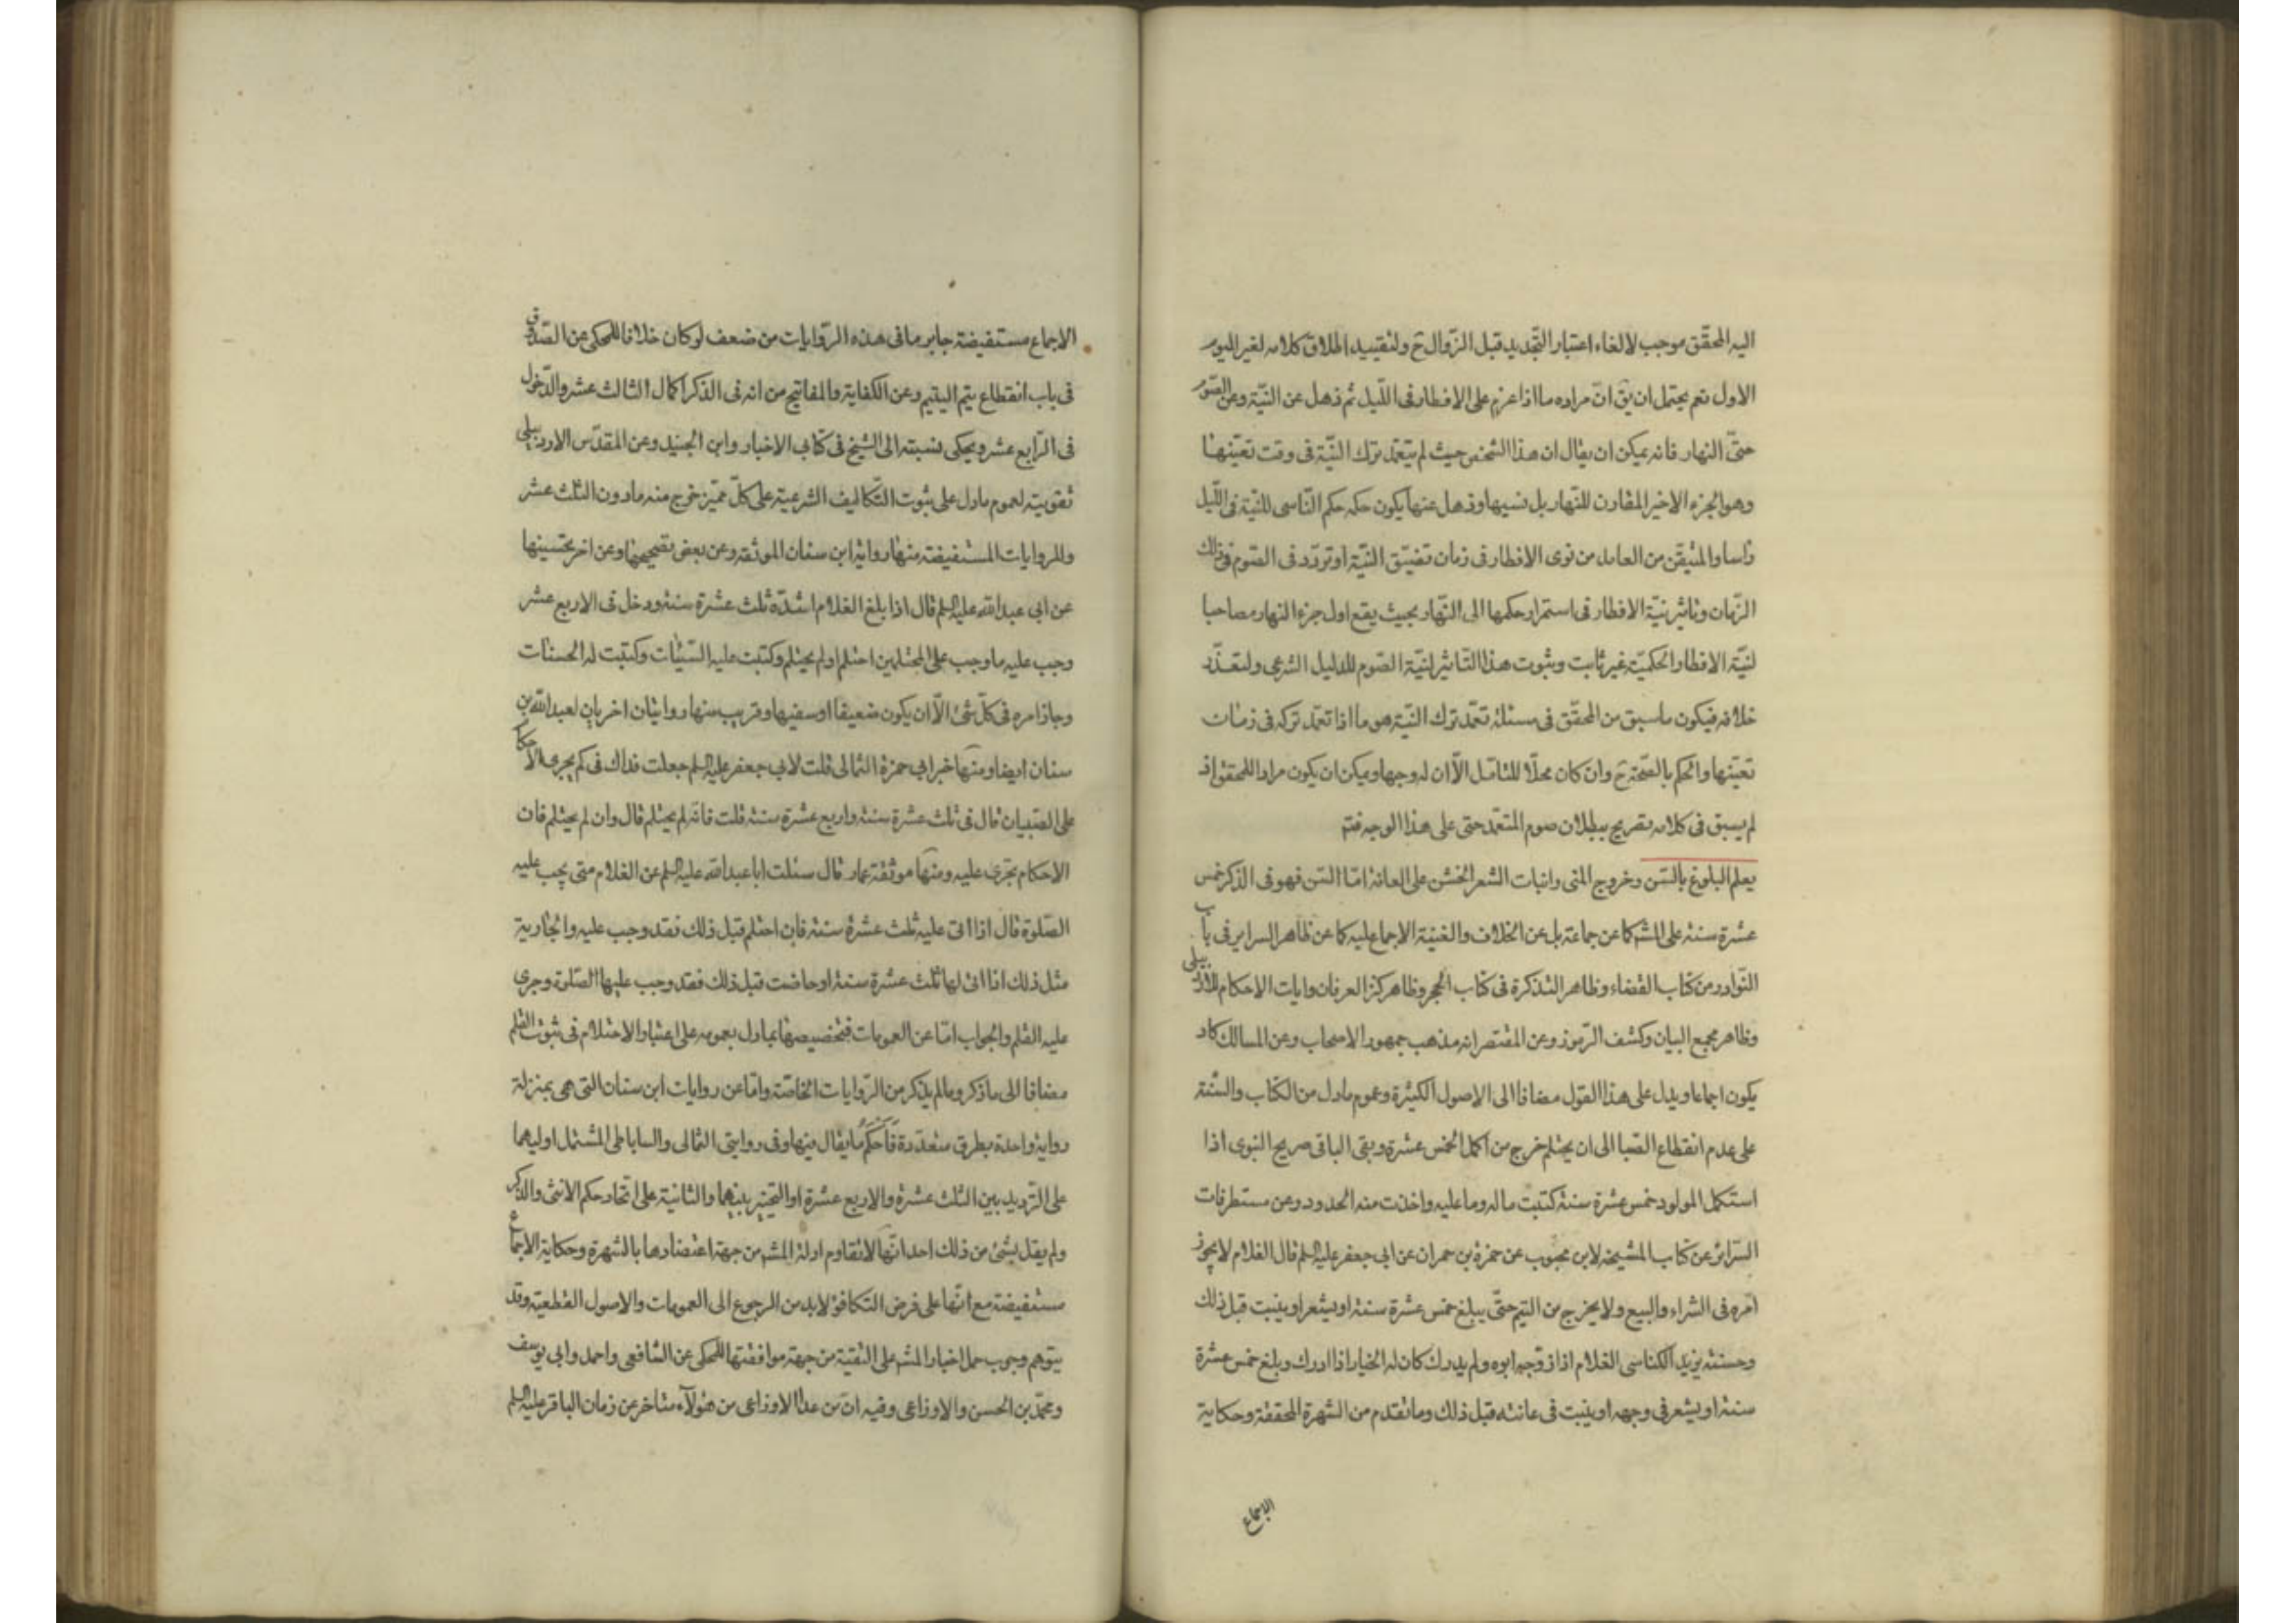 اليه المحقّق موجب لالغاء اعتبار التّجديد قبل الزّوال ح ولتقييد اطلاق كلامه لغير اليوم
الاول نعم يحتمل ان يق انّ مراده ما اذا عزم على الافطار فى اللّيل ثم ذهل عن النيّة وعن الصّوم
حتّى النهار فانه يمكن ان يقال ان هذا الشخص حيث لم يتعمّد ترك النيّة فى وقت تعيّنها
وهو الجزء الاخير المقارن للنّهار بل نسيها وذهل عنها يكون حكمه حكم النّاسى للنيّة فى اللّيل
راسا والمتيقّن من العامد من نوى الافطار فى زمان تضيّق النيّة او تردّد فى الصّوم فى ذلك
الزّمان وتاثير نيّة الافطار فى استمرار حكمها الى النّهار بحيث يقع اول جزء النهار مصاحبا
لنيّة الافطار الحكميّة غير ثابت وثبوت هذا التّاثير لنيّة الصّوم للدليل الشرعى ولتعذّر
خلافه فيكون ما سبق من المحقّق فى مسئلة تعمّد ترك النيّة هو ما اذا تعمّد تركه فى زمان
تعيّنها والحكم بالصّحّة ح وان كان محلّا للتامّل الّا ان له وجها ويمكن ان يكون مراد المحقق اذ
لم يسبق فى كلامه تصريح ببطلان صوم المتعمّد حتى على هذا الوجه فتم
يعلم البلوغ بالسّن وخروج المنى وانبات الشعر الخشن على العانة امّا السّن فهو فى الذكر خمس
عشرة سنة على المشهـ كما عن جماعة بل عن الخلاف والغنية الاجماع عليه كما عن ظاهر السراير فى باب
النّوادر من كتاب القضاء وظاهر التذكرة فى كتاب الحجر وظاهر كنز العرفان وايات الاحكام للاردبيلى
وظاهر مجمع البيان وكشف الرّموز وعن المقتصر انه مذهب جمهور الاصحاب وعن المسالك كاد
يكون اجماعا ويدل على هذا القول مضافا الى الاصول الكثيرة وعموم ما دل من الكتاب والسّنة
على عدم انقطاع الصّبا الى ان يحتلم خرج من اكمل الخمس عشرة وبقى الباقى صريح النبوى اذا
استكمل المولود خمس عشرة سنة كتبت ما له وما عليه واخذت منه الحدود وعن مستطرفات
السّرائر عن كتاب المشيخة لابن محبوب عن حمزة بن حمران عن ابى جعفر عليه السلم قال الغلام لا يجوز
امره فى الشراء والبيع ولا يخرج من اليتم حتّى يبلغ خمس عشرة سنة او يشعر او ينبت قبل ذلك
وحسنة يزيد الكناسى الغلام اذا زوّجه ابوه ولم يدرك كان له الخيار اذا ادرك وبلغ خمس عشرة
سنة او يشعر فى وجهه او ينبت فى عانته قبل ذلك وما تقدم من الشهرة المحققة وحكاية
الاجماع
الاجماع مستفيضة جابر ما فى هذه الرّوايات من ضعف لو كان خلافا للمحكى عن الصّدوق
فى باب انقطاع يتم اليتيم وعن الكفاية والمفاتيح من انه فى الذكر اكمال الثالث عشر والدّخول
فى الرّابع عشر ويحكى نسبته الى الشيخ فى كتابى الاخبار وابن الجنيد وعن المقدّس الاردبيلى
تقويته لعموم ما دل على ثبوت التّكاليف الشرعية على كلّ مميّز خرج منه ما دون الثلث عشر
وللروايات المستفيضة منها رواية ابن سنان الموثقة وعن بعض تصحيحها وعن اخر تحسينها
عن ابى عبد الله عليه السلم قال اذا بلغ الغلام اشدّه ثلث عشرة سنة ودخل فى الاربع عشر
وجب عليه ما وجب على المحتلمين احتلم او لم يحتلم وكتبت عليه السّيّئات وكتبت له الحسنات
وجاز امره فى كلّ شئ الّا ان يكون ضعيفا او سفيها وقريب منها روايتان اخريان لعبد الله بن
سنان ايضا ومنها خبر ابى حمزة الثمالى قلت لابى جعفر عليه السلم جعلت فداك فى كم يجرى الاحكام
على الصّبيان قال فى ثلث عشرة سنة واربع عشرة سنة قلت فانّه لم يحتلم قال وان لم يحتلم فان
الاحكام تجرى عليه ومنها موثقة عمار قال سئلت ابا عبد الله عليه السلم عن الغلام متى يجب عليه
الصّلوة قال اذا اتى عليه ثلث عشرة سنة فان احتلم قبل ذلك فقد وجب عليه والجارية
مثل ذلك اذا اتى لها ثلث عشرة سنة او حاضت قبل ذلك فقد وجب عليها الصّلوة وجرى
عليه القلم والجواب امّا عن العمومات فتخصيصها بما دل بعمومه على اعتبار الاحتلام فى ثبوت القلم
مضافا الى ما ذكر وما لم يذكر من الرّوايات الخاصّة وامّا عن روايات ابن سنان التى هى بمنزلة
رواية واحدة بطرق متعدّدة فاحكم ما يقال فيها وفى روايتى الثمالى والساباطى المشتمل اوليهما
على التّرديد بين الثلث عشرة والاربع عشرة او التخيير بينهما والثانية على اتحاد حكم الانثى والذكر
ولم يقل بشئ من ذلك احد انّها لا تقاوم ادلة المشهـ من جهة اعتضادها بالشهرة وحكاية الاجماع
مستفيضة مع انّها على فرض التكافؤ لا بد من الرجوع الى العمومات والاصول القطعيّة وقد
يتوهم وجوب حمل اخبار المشهـ على التقية من جهة موافقتها للمحكى عن الشافعى واحمد وابى يوسف
ومحمّد بن الحسن والاوزاعى وفيه انّ من عدا الاوزاعى من هؤلآء متاخر عن زمان الباقر عليه السلم